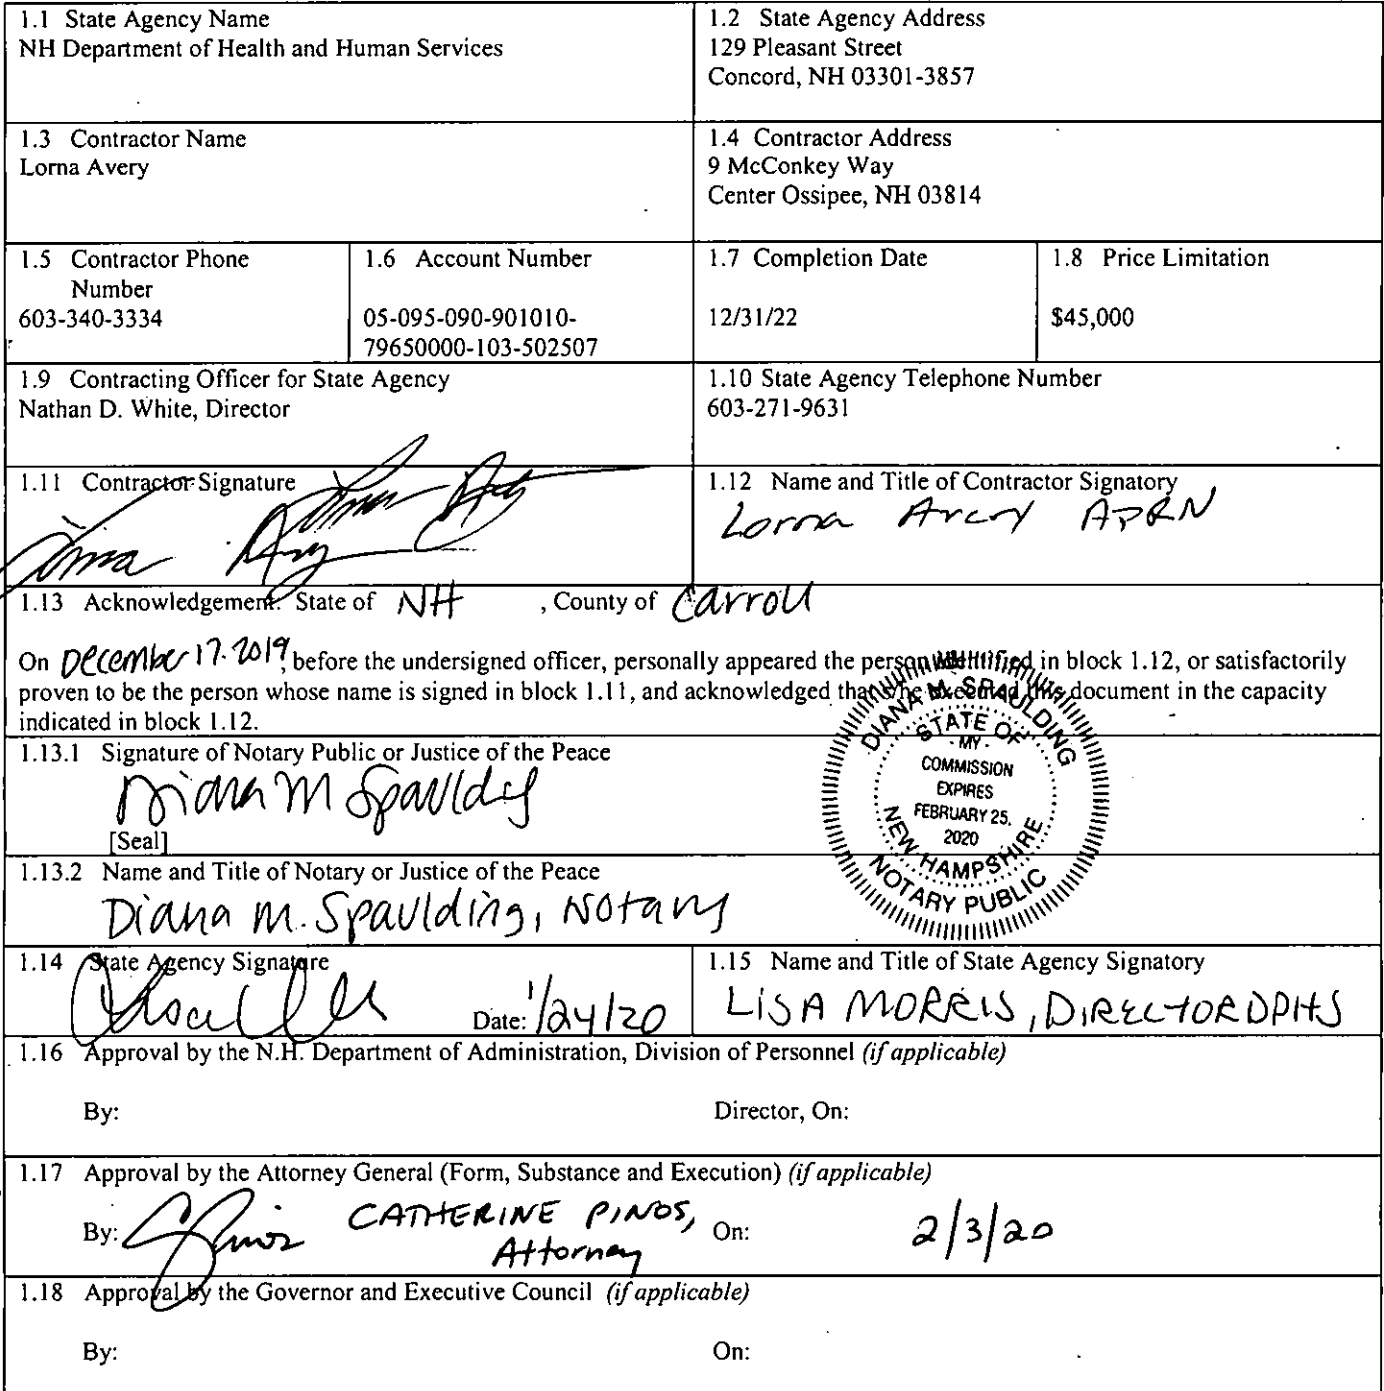 1.1 State Agency Name
NH Department of Health and Human Services
1.2 State Agency Address
129 Pleasant Street
Concord, NH 03301-3857
1.3 Contractor Name
Lorna Avery
1.4 Contractor Address
9 McConkey Way
Center Ossipee, NH 03814
1.5 Contractor Phone
Number
603-340-3334
1.6 Account Number
05-095-090-901010-
79650000-103-502507
1.7 Completion Date
12/31/22
1.8 Price Limitation
$45,000
1.9 Contracting Officer for State Agency
Nathan D. White, Director
1.10 State Agency Telephone Number
603-271-9631
1.11 Contractor Signature
Lorna Avery
Lorna Avery
1.12 Name and Title of Contractor Signatory
Lorna Avery APRN
1.13 Acknowledgement: State of NH , County of Carroll
On December 17. 2019, before the undersigned officer, personally appeared the person identified in block 1.12, or satisfactorily
proven to be the person whose name is signed in block 1.11, and acknowledged that s/he executed this document in the capacity
indicated in block 1.12.
DIANA M. SPAULDING
STATE OF
- MY -
COMMISSION
EXPIRES
FEBRUARY 25,
2020
NEW HAMPSHIRE
NOTARY PUBLIC
1.13.1 Signature of Notary Public or Justice of the Peace
Diana M Spaulding
[Seal]
1.13.2 Name and Title of Notary or Justice of the Peace
Diana M. Spaulding, Notary
1.14 State Agency Signature
Date: 1/24/20
1.15 Name and Title of State Agency Signatory
LISA MORRIS, DIRECTOR DPHS
1.16 Approval by the N.H. Department of Administration, Division of Personnel (if applicable)
By: Director, On:
1.17 Approval by the Attorney General (Form, Substance and Execution) (if applicable)
By: CPinos CATHERINE PINOS, On: 2/3/20
Attorney
1.18 Approval by the Governor and Executive Council (if applicable)
By: On: